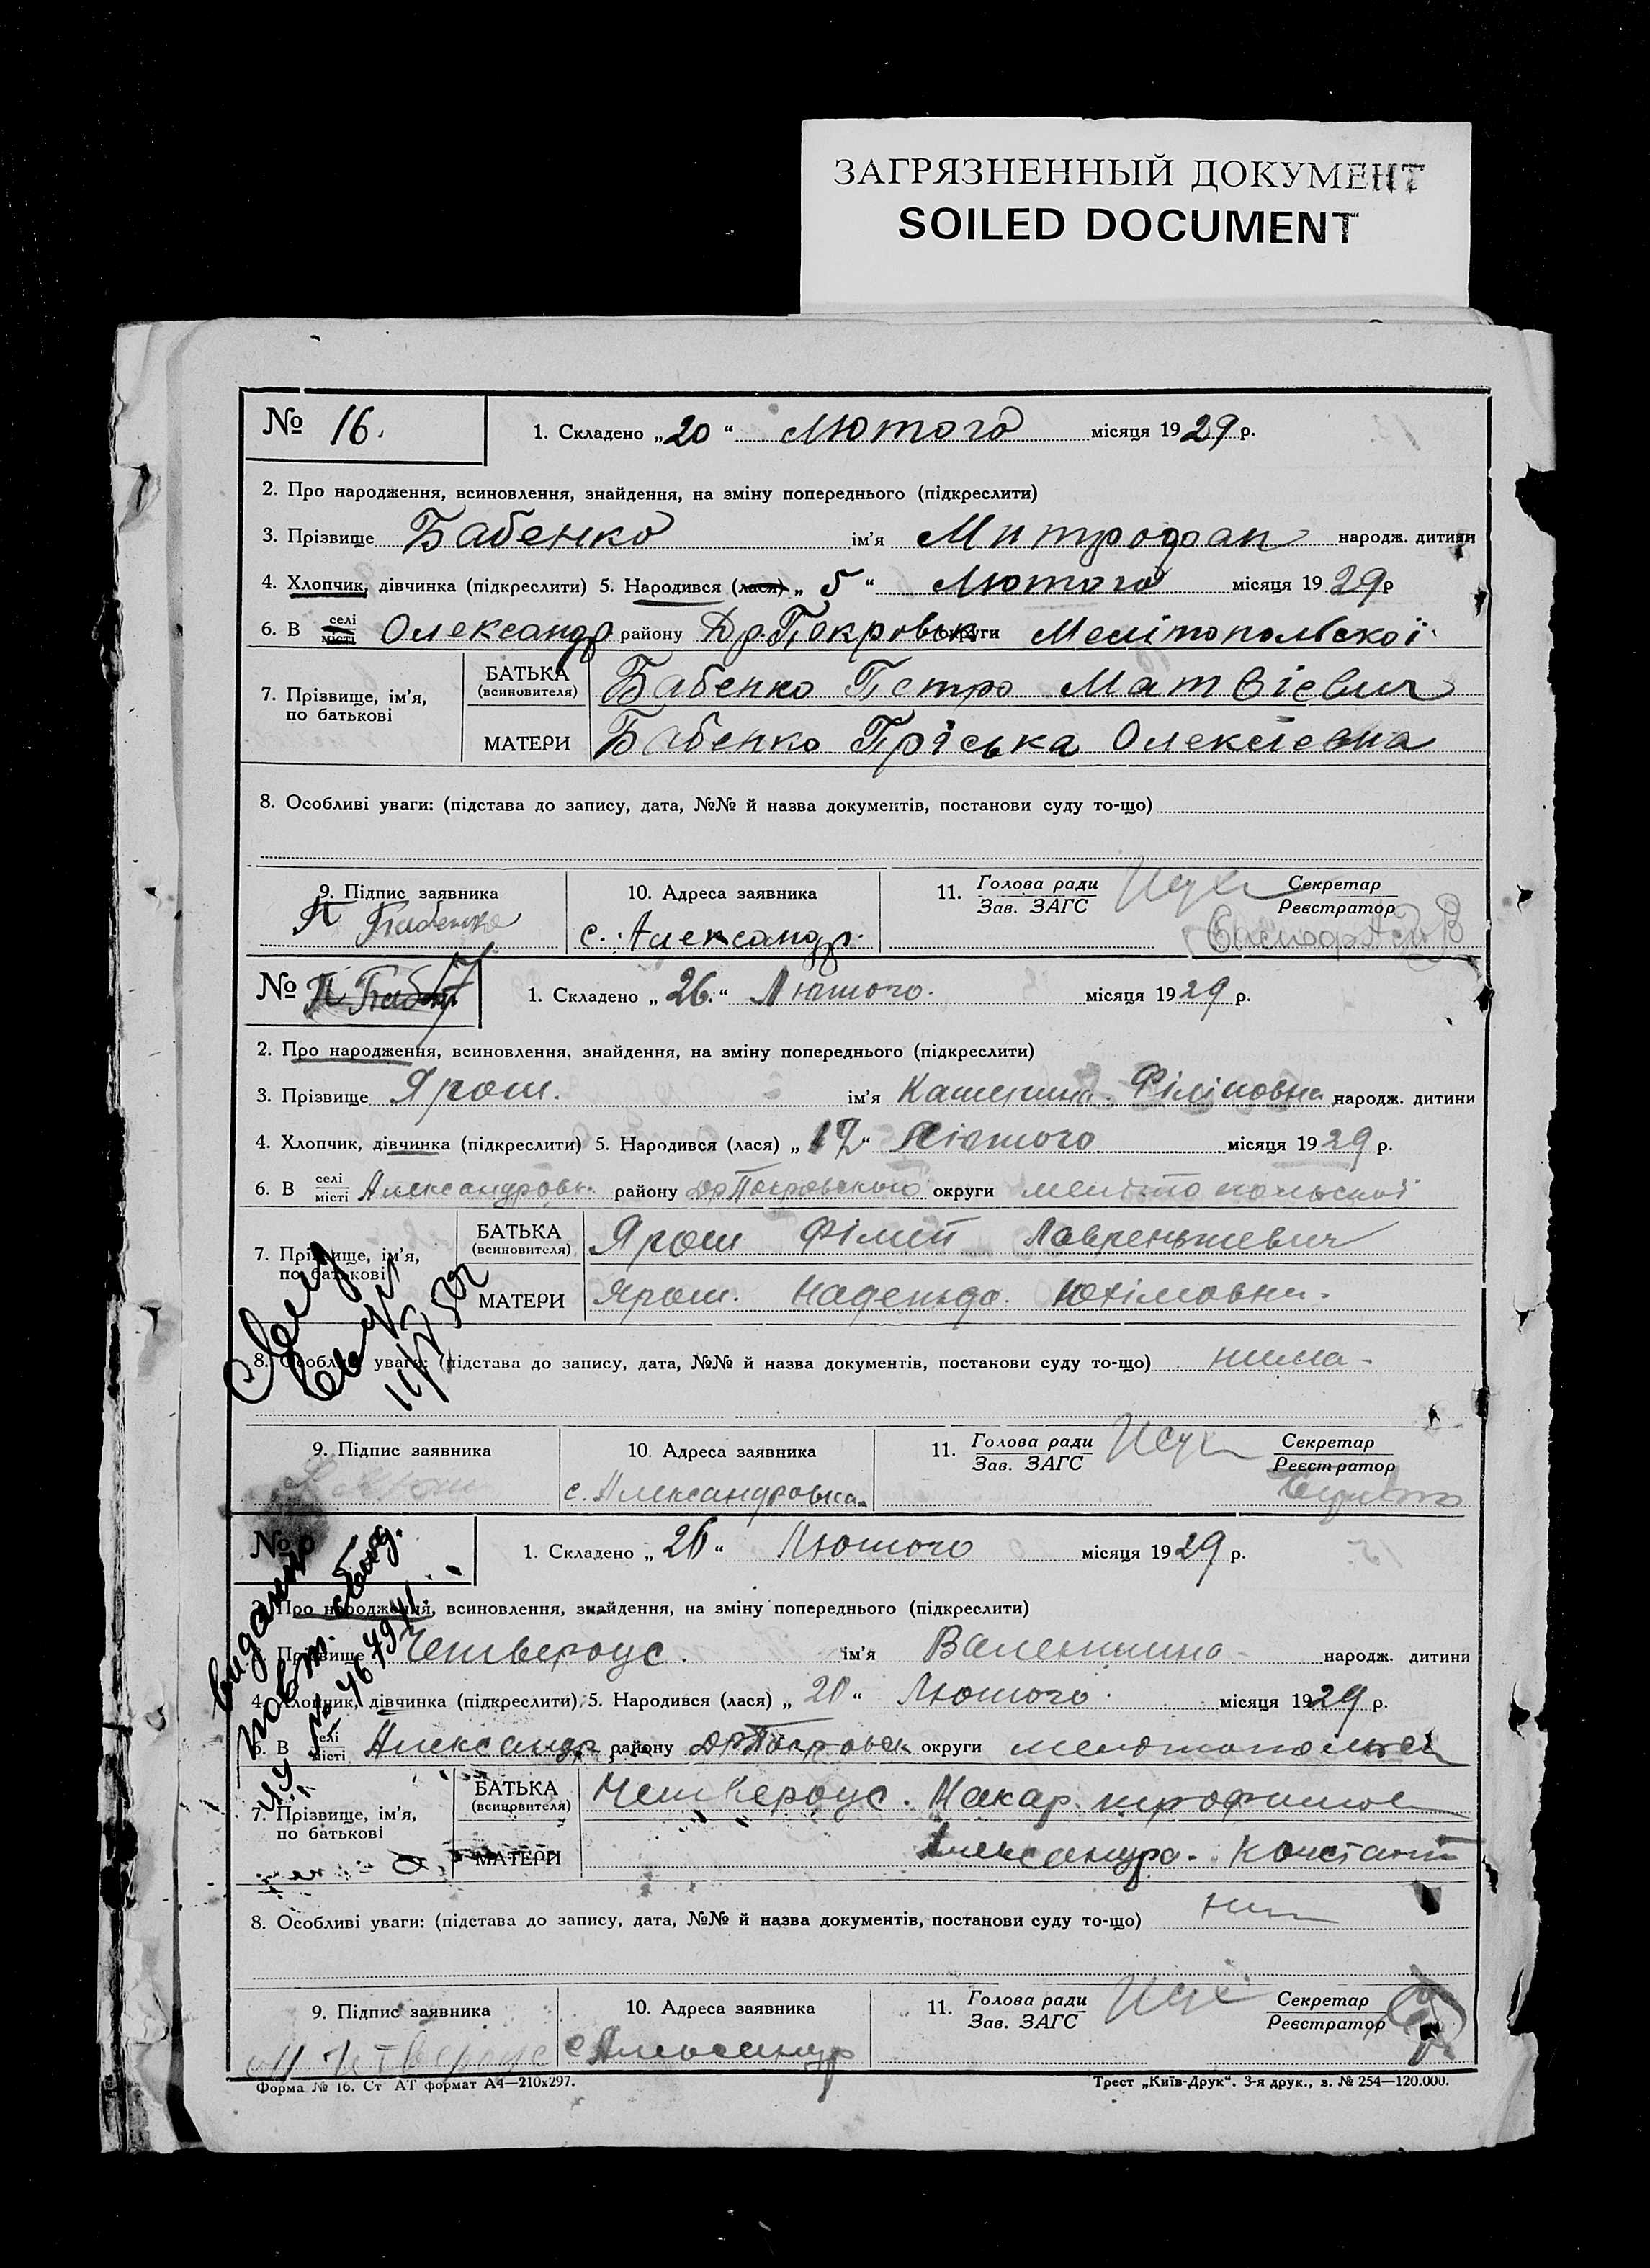 ЗАГРЯЗНЕННЫЙ ДОКУМЕНТ
SOILED DOCUMENT
№ 16.
1. Складено „20“ Лютого місяця 1929 р.
2. Про народження, всиновлення, знайдення, на зміну попереднього (підкреслити)
3. Прізвище Бабенко ім’я Митрофан народж. дитини
4. Хлопчик, дівчинка (підкреслити) 5. Народився (лася) „5“ Лютого місяця 1929 р
6. В селі місті Олександр району Др.Покровськ округи Мелітопольскої
7. Прізвище, ім’я, по батькові
БАТЬКА (всиновителя) Бабенко Петро Матвієвич
МАТЕРИ Бабенко Пріська Олексіевна
8. Особливі уваги: (підстава до запису, дата, №№ й назва документів, постанови суду то-що)
9. Підпис заявника 10. Адреса заявника 11. Голова ради Зав. ЗАГС Секретар Реєстратор
П Бабенко с. Александр.
№ П Бабен 17
1. Складено „26.“ Лютого. місяця 1929 р.
2. Про народження, всиновлення, знайдення, на зміну попереднього (підкреслити)
3. Прізвище Ярош. ім’я Катерина Філіповна народж. дитини
4. Хлопчик, дівчинка (підкреслити) 5. Народився (лася) „17“ Лютого місяця 1929 р.
6. В селі місті Александровк. району ДрПокровського округи мелітопольскої
7. Прізвище, ім’я, по батькові
БАТЬКА (всиновителя) Ярош Філип Лавреньтиевич
МАТЕРИ Ярош. Наденьда. Юхімовна.
8. Особливі уваги: (підстава до запису, дата, №№ й назва документів, постанови суду то-що) нима-
9. Підпис заявника 10. Адреса заявника 11. Голова ради Зав. ЗАГС Секретар Реєстратор
с. Александровка
№
1. Складено „26“ Лютого місяця 1929 р.
Про народження, всиновлення, знайдення, на зміну попереднього (підкреслити)
Прізвище Четвероус. ім’я Валентина народж. дитини
4. Хлопчик, дівчинка (підкреслити) 5. Народився (лася) „20“ Лютого. місяця 1929 р.
6. В селі місті Александр району ДрПокровск округи
7. Прізвище, ім’я, по батькові
БАТЬКА (всиновителя) Четвероус. Макар.
МАТЕРИ Александра. Констант
8. Особливі уваги: (підстава до запису, дата, №№ й назва документів, постанови суду то-що)
видани повт. свид.
9. Підпис заявника 10. Адреса заявника 11. Голова ради Зав. ЗАГС Секретар Реєстратор
М Четвероус с Александр
Форма № 16. Ст АТ формат А4—210х297.
Трест „Київ-Друк“. 3-я друк., з. № 254—120.000.